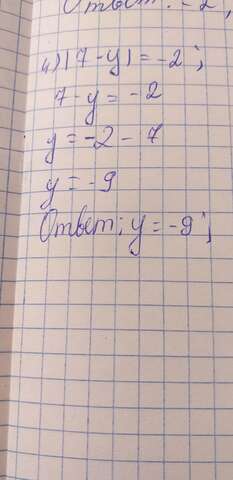 Ответ: -2,
4) |7-y| = -2;
7-y = -2
y = -2 - 7
y = -9
Ответ; y = -9;